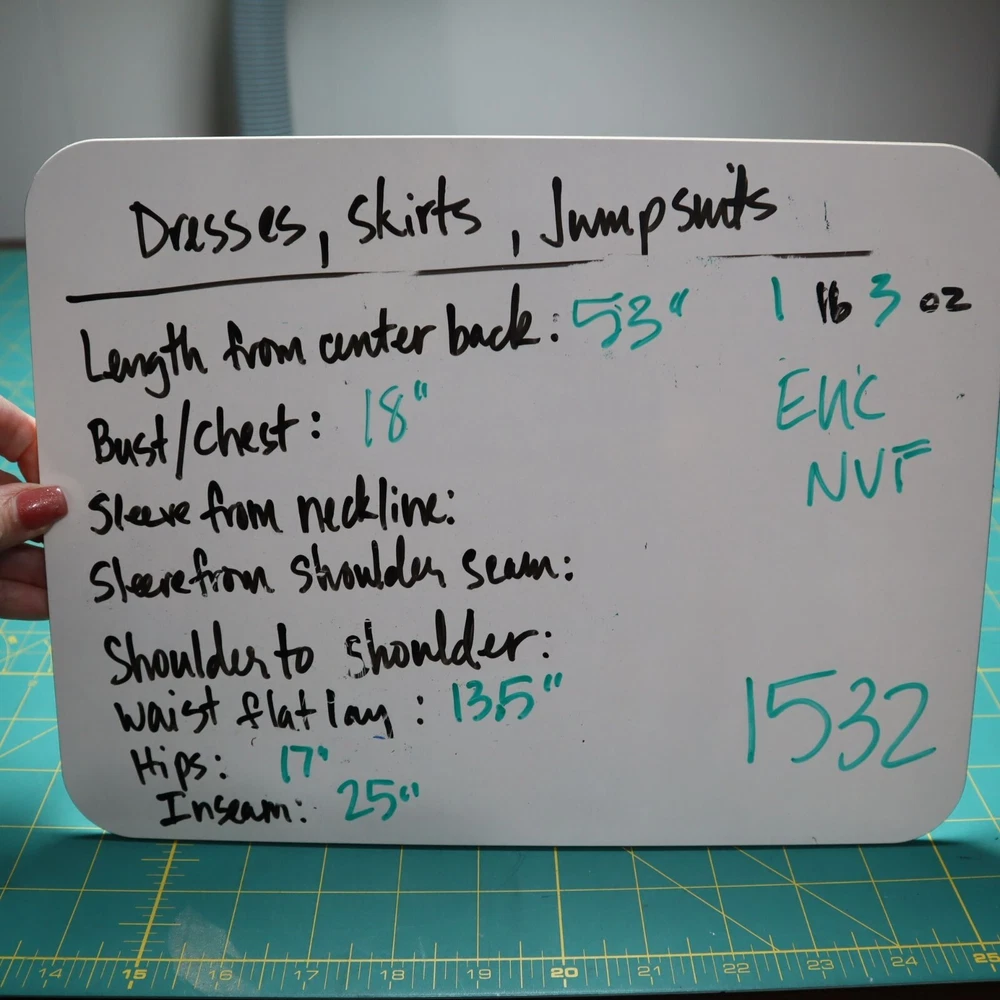 Dresses, Skirts, Jumpsuits
Length from center back: 53" 1 lb 3 oz
Bust/chest: 18" Eric
Sleeve from neckline: NVF
Sleeve from shoulder seam:
Shoulder to shoulder:
Waist flat lay: 13.5" 1532
Hips: 17"
Inseam: 25"
14 15 16 17 18 19 20 21 22 23 24 25